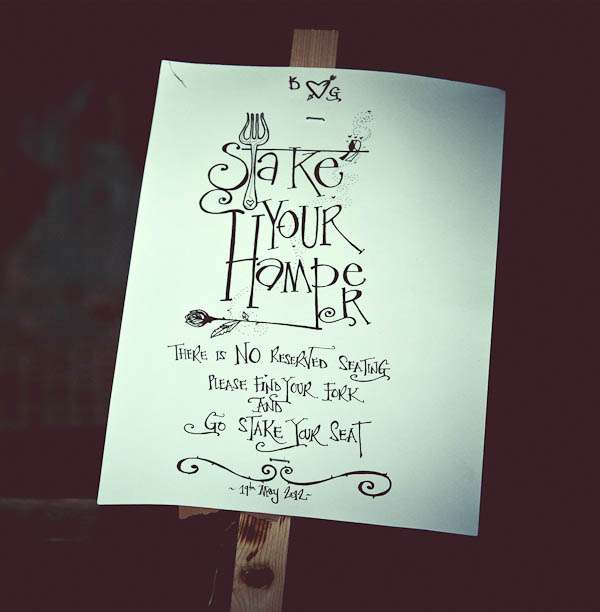 B G
Stake
YOUR
HAMPeR
THERE IS NO RESERVED SEATING
PLEASE FIND YOUR FORK
AND
GO STAKE YOUR SEAT
~ 19th MAY 2012 ~